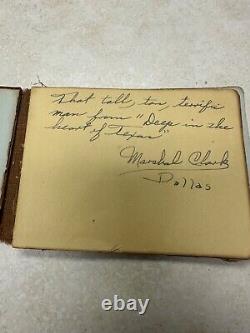 That tall, tan, terrific
man from "Deep in the
heart of Texas"
Marshal Clark
Dallas